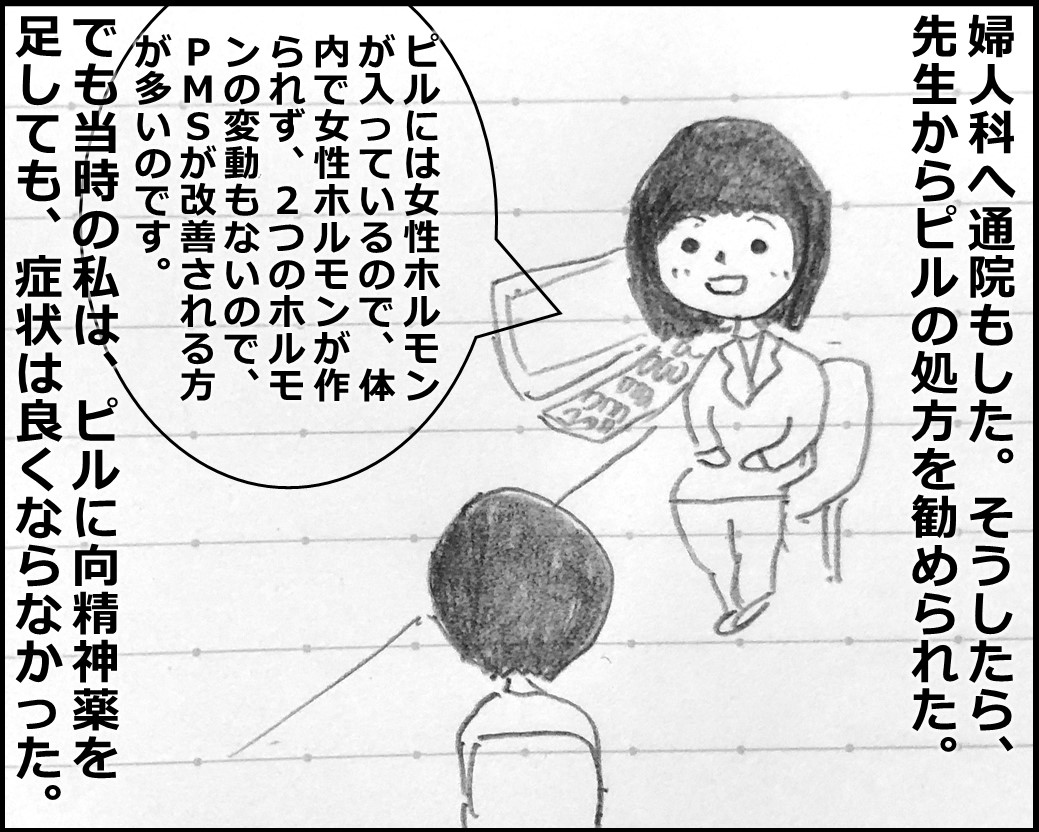 婦人科へ通院もした。そうしたら、
先生からピルの処方を勧められた。
ピルには女性ホルモン
が入っているので、体
内で女性ホルモンが作
られず、2つのホルモ
ンの変動もないので、
PMSが改善される方
が多いのです。
でも当時の私は、ピルに向精神薬を
足しても、症状は良くならなかった。